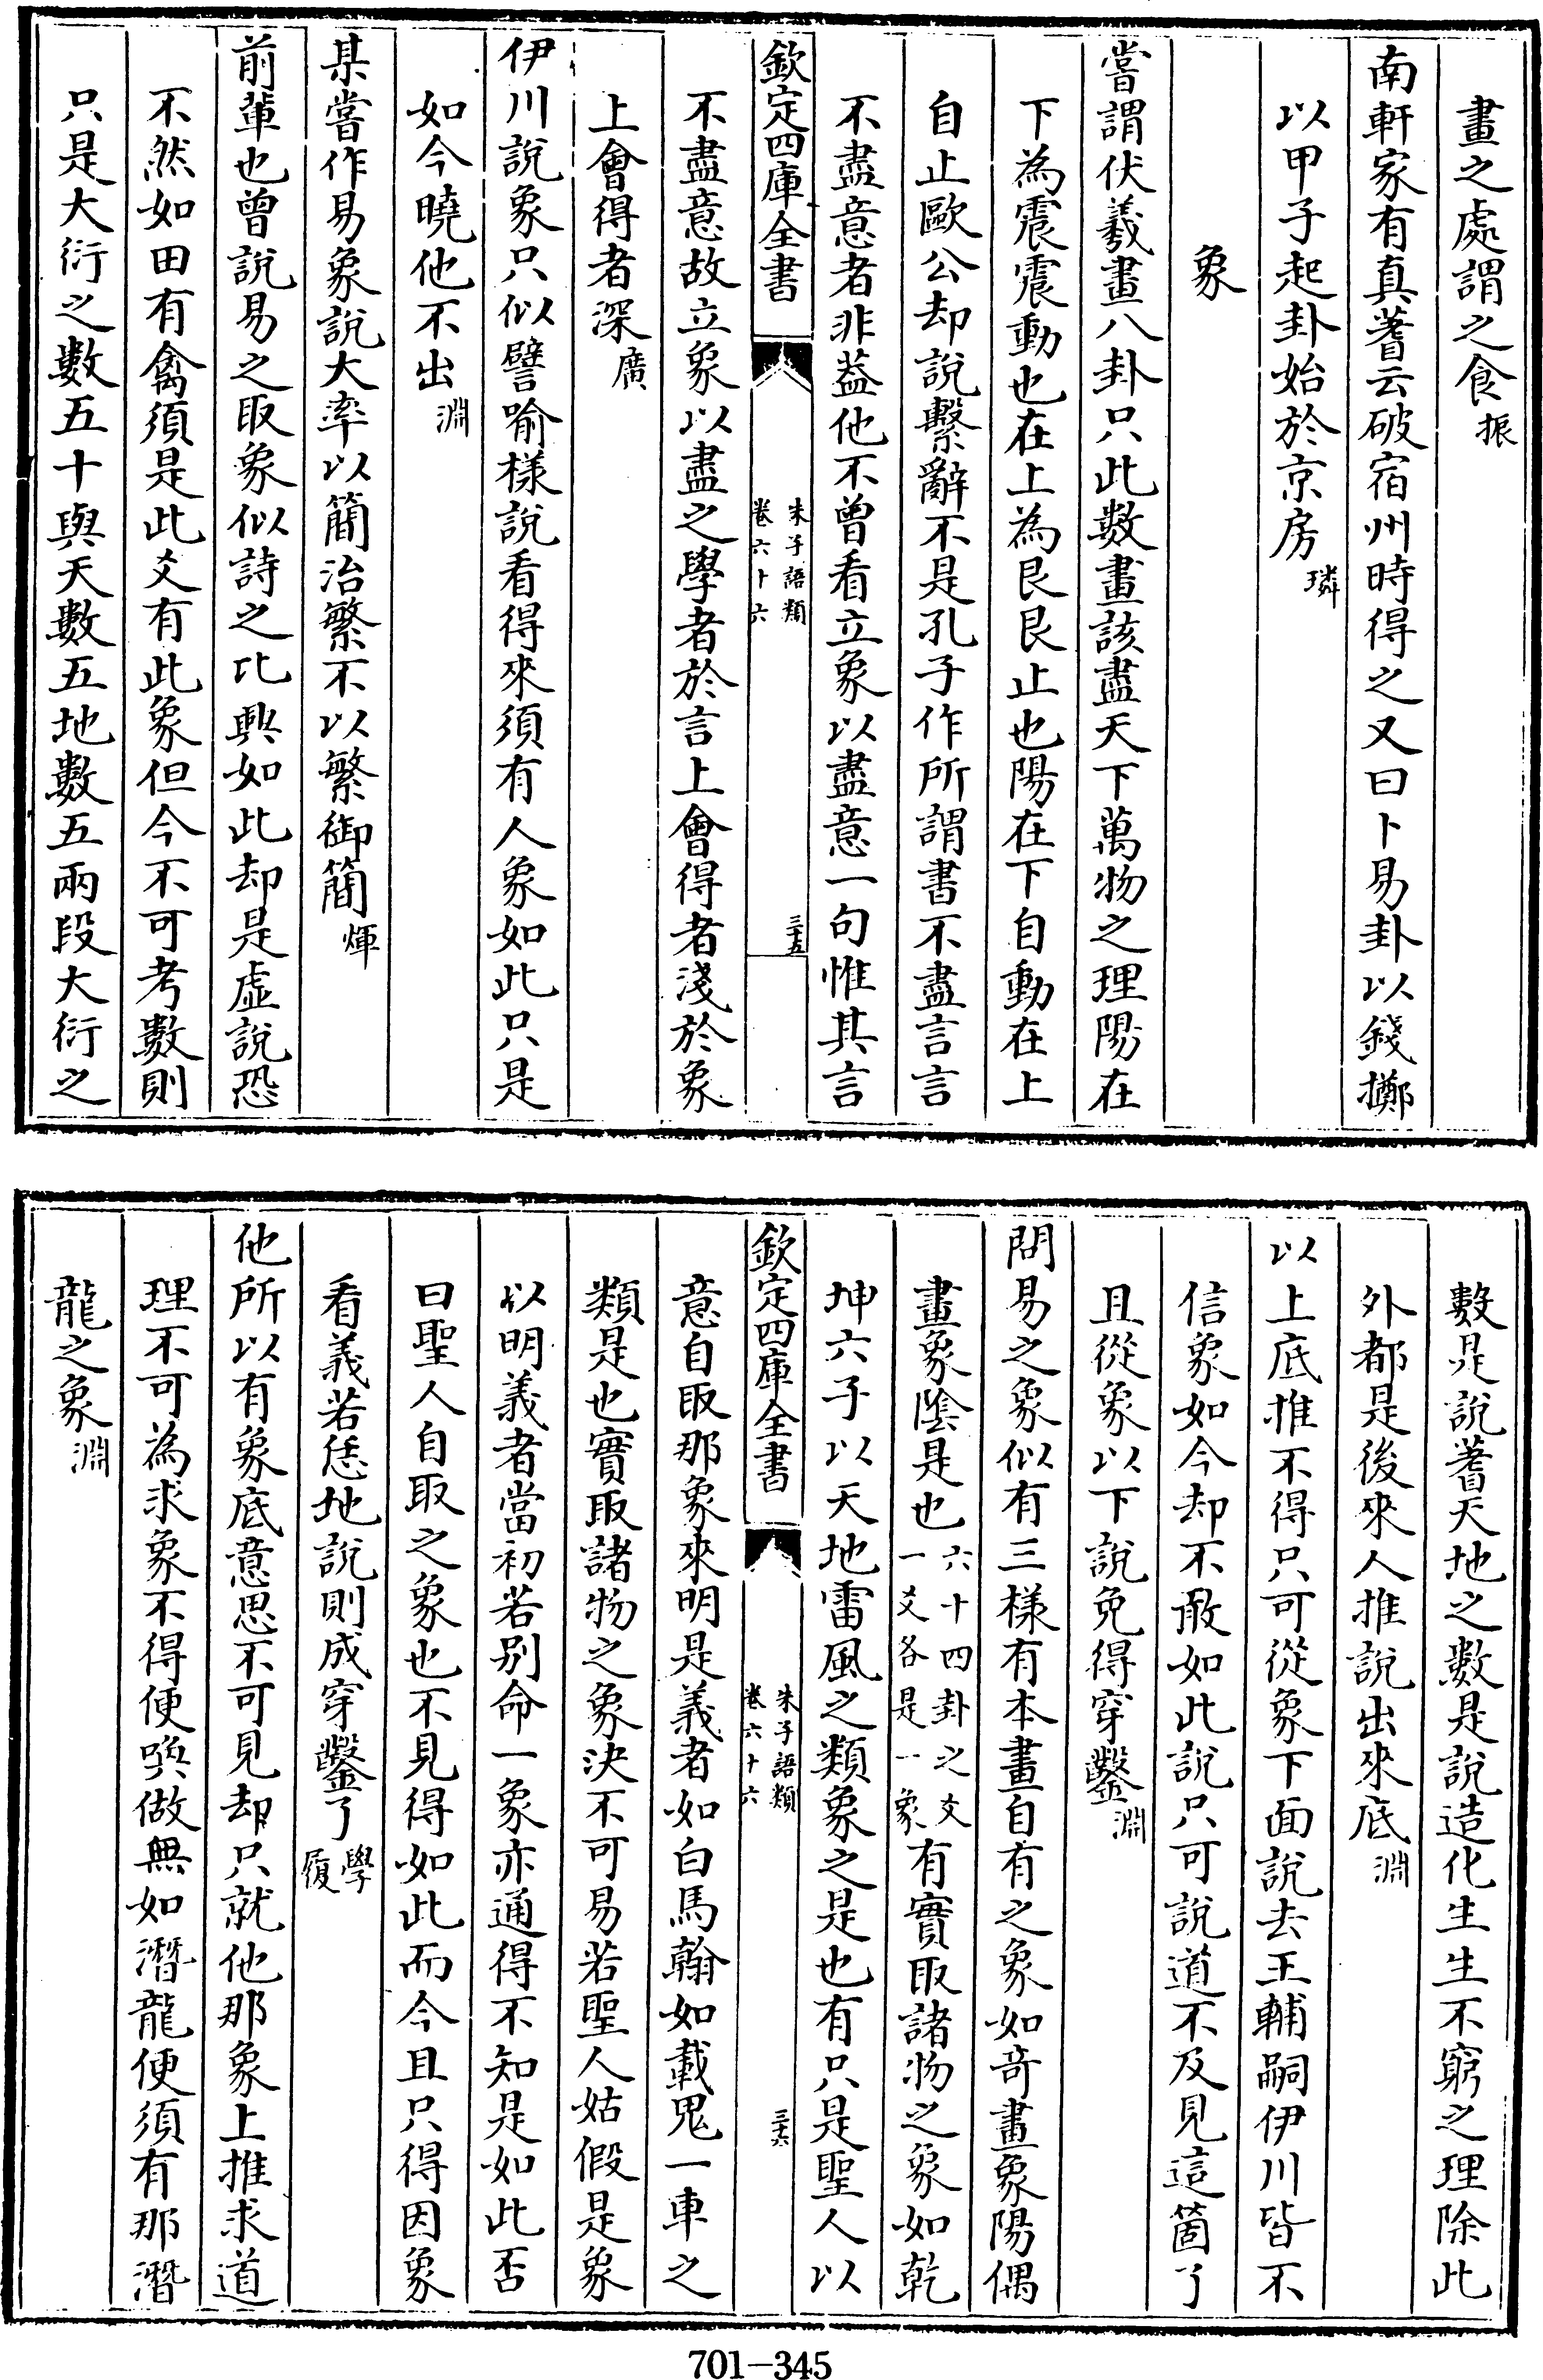 畫之處謂之食振
南軒家有真蓍云破宿州時得之又曰卜易卦以錢擲
以甲子起卦始於京房璘
象
嘗謂伏羲畫八卦只此數畫該盡天下萬物之理陽在
下為震震動也在上為艮艮止也陽在下自動在上
自止歐公却說繫辭不是孔子作所謂書不盡言言
不盡意者非葢他不曾看立象以盡意一句惟其言
欽定四庫全書
朱子語類
卷六十六
三十五
不盡意故立象以盡之學者於言上會得者淺於象
上會得者深廣
伊川說象只似譬喻樣說看得來須有人象如此只是
如今曉他不出淵
某嘗作易象說大率以簡治繁不以繁御簡煇
前輩也曾說易之取象似詩之比興如此却是虛說恐
不然如田有禽須是此爻有此象但今不可考數則
只是大衍之數五十與天數五地數五兩段大衍之
數是說蓍天地之數是說造化生生不窮之理除此
外都是後來人推說出來底淵
以上底推不得只可從象下面說去王輔嗣伊川皆不
信象如今却不敢如此說只可說道不及見這箇了
且從象以下說免得穿鑿淵
問易之象似有三樣有本畫自有之象如奇畫象陽偶
畫象陰是也六十四卦之爻一爻各是一象有實取諸物之象如乾
坤六子以天地雷風之類象之是也有只是聖人以
欽定四庫全書
朱子語類
卷六十六
三十六
意自取那象來明是義者如白馬翰如載鬼一車之
類是也實取諸物之象決不可易若聖人姑假是象
以明義者當初若別命一象亦通得不知是如此否
曰聖人自取之象也不見得如此而今且只得因象
看義若恁地說則成穿鑿了學履
他所以有象底意思不可見却只就他那象上推求道
理不可為求象不得便喚做無如潛龍便須有那潛
龍之象淵
701-345